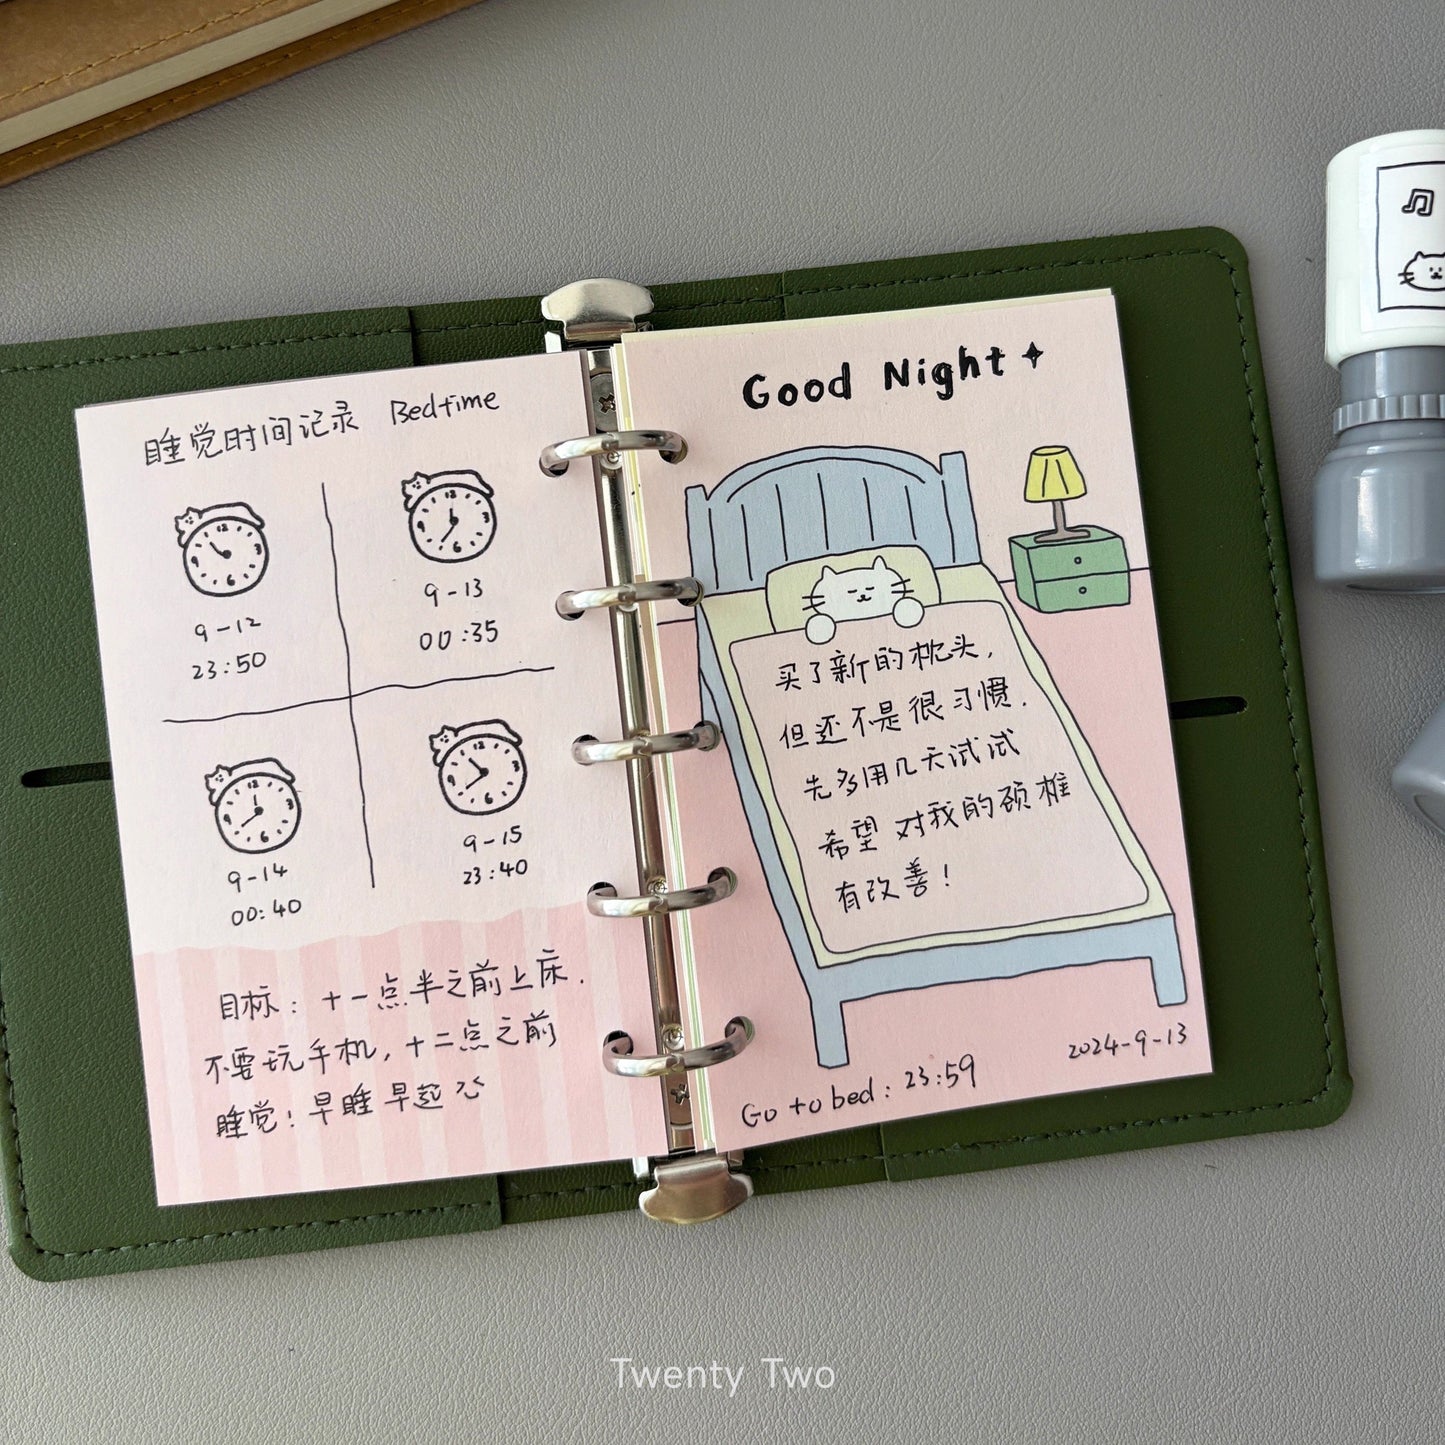 睡觉时间记录 Bedtime
9-12
23:50
9-13
00:35
9-14
00:40
9-15
23:40
目标：十一点半之前上床.
不要玩手机，十二点之前
睡觉！早睡早起
Good Night
买了新的枕头，
但还不是很习惯.
先多用几天试试
希望对我的颈椎
有改善！
Go to bed: 23:59
2024-9-13
Twenty Two